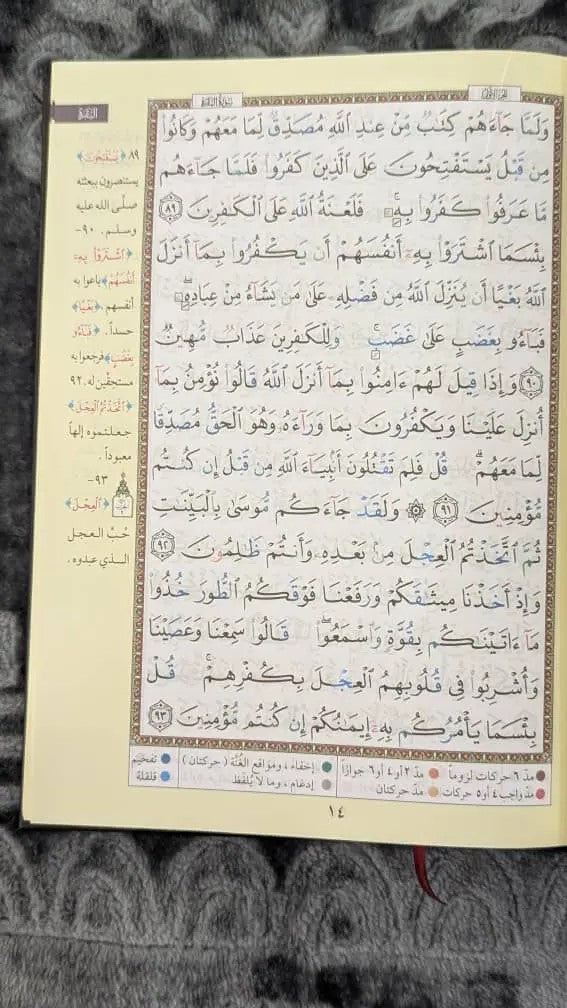 الجزء الأول
سورة البقرة
البقرة
وَلَمَّا جَآءَهُمْ كِتَٰبٌ مِّنْ عِندِ ٱللَّهِ مُصَدِّقٌ لِّمَا مَعَهُمْ وَكَانُوا۟
مِن قَبْلُ يَسْتَفْتِحُونَ عَلَى ٱلَّذِينَ كَفَرُوا۟ فَلَمَّا جَآءَهُم
مَّا عَرَفُوا۟ كَفَرُوا۟ بِهِۦ ۚ فَلَعْنَةُ ٱللَّهِ عَلَى ٱلْكَٰفِرِينَ ٨٩
بِئْسَمَا ٱشْتَرَوْا۟ بِهِۦٓ أَنفُسَهُمْ أَن يَكْفُرُوا۟ بِمَآ أَنزَلَ
ٱللَّهُ بَغْيًا أَن يُنَزِّلَ ٱللَّهُ مِن فَضْلِهِۦ عَلَىٰ مَن يَشَآءُ مِنْ عِبَادِهِۦ ۖ
فَبَآءُو بِغَضَبٍ عَلَىٰ غَضَبٍ ۚ وَلِلْكَٰفِرِينَ عَذَابٌ مُّهِينٌ
٩٠ وَإِذَا قِيلَ لَهُمْ ءَامِنُوا۟ بِمَآ أَنزَلَ ٱللَّهُ قَالُوا۟ نُؤْمِنُ بِمَآ
أُنزِلَ عَلَيْنَا وَيَكْفُرُونَ بِمَا وَرَآءَهُۥ وَهُوَ ٱلْحَقُّ مُصَدِّقًا
لِّمَا مَعَهُمْ ۗ قُلْ فَلِمَ تَقْتُلُونَ أَنۢبِيَآءَ ٱللَّهِ مِن قَبْلُ إِن كُنتُم
مُّؤْمِنِينَ ٩١ ۞ وَلَقَدْ جَآءَكُم مُّوسَىٰ بِٱلْبَيِّنَٰتِ
ثُمَّ ٱتَّخَذْتُمُ ٱلْعِجْلَ مِنۢ بَعْدِهِۦ وَأَنتُمْ ظَٰلِمُونَ ٩٢
وَإِذْ أَخَذْنَا مِيثَٰقَكُمْ وَرَفَعْنَا فَوْقَكُمُ ٱلطُّورَ خُذُوا۟
مَآ ءَاتَيْنَٰكُم بِقُوَّةٍ وَٱسْمَعُوا۟ ۖ قَالُوا۟ سَمِعْنَا وَعَصَيْنَا
وَأُشْرِبُوا۟ فِى قُلُوبِهِمُ ٱلْعِجْلَ بِكُفْرِهِمْ ۚ قُلْ
بِئْسَمَا يَأْمُرُكُم بِهِۦٓ إِيمَٰنُكُمْ إِن كُنتُم مُّؤْمِنِينَ ٩٣
٨٩ ﴿يَسْتَفْتِحُونَ﴾
يستنصرون ببعثته
صلَّى الله عليه
وسلم. ٩٠-
﴿ٱشْتَرَوْا۟ بِهِۦٓ
أَنفُسَهُمْ﴾ باعوا به
أنفسهم ﴿بَغْيًا﴾
حسداً. ﴿فَبَآءُو
بِغَضَبٍ﴾ فرجعوا به
مستحقين له. ٩٢
﴿ٱتَّخَذْتُمُ ٱلْعِجْلَ﴾
جعلتموه إلهاً
معبوداً.
٩٣-
﴿ٱلْعِجْلَ﴾
حُبَّ العجل
الذي عبدوه.
مدّ ٦ حركات لزوماً مدّ ٢ أو ٤ أو ٦ جوازاً إخفاء، ومواقع الغُنَّة (حركتان) تفخيم
مدّ واجب ٤ أو ٥ حركات مدّ حركتان إدغام، وما لا يُلفَظ قلقلة
١٤